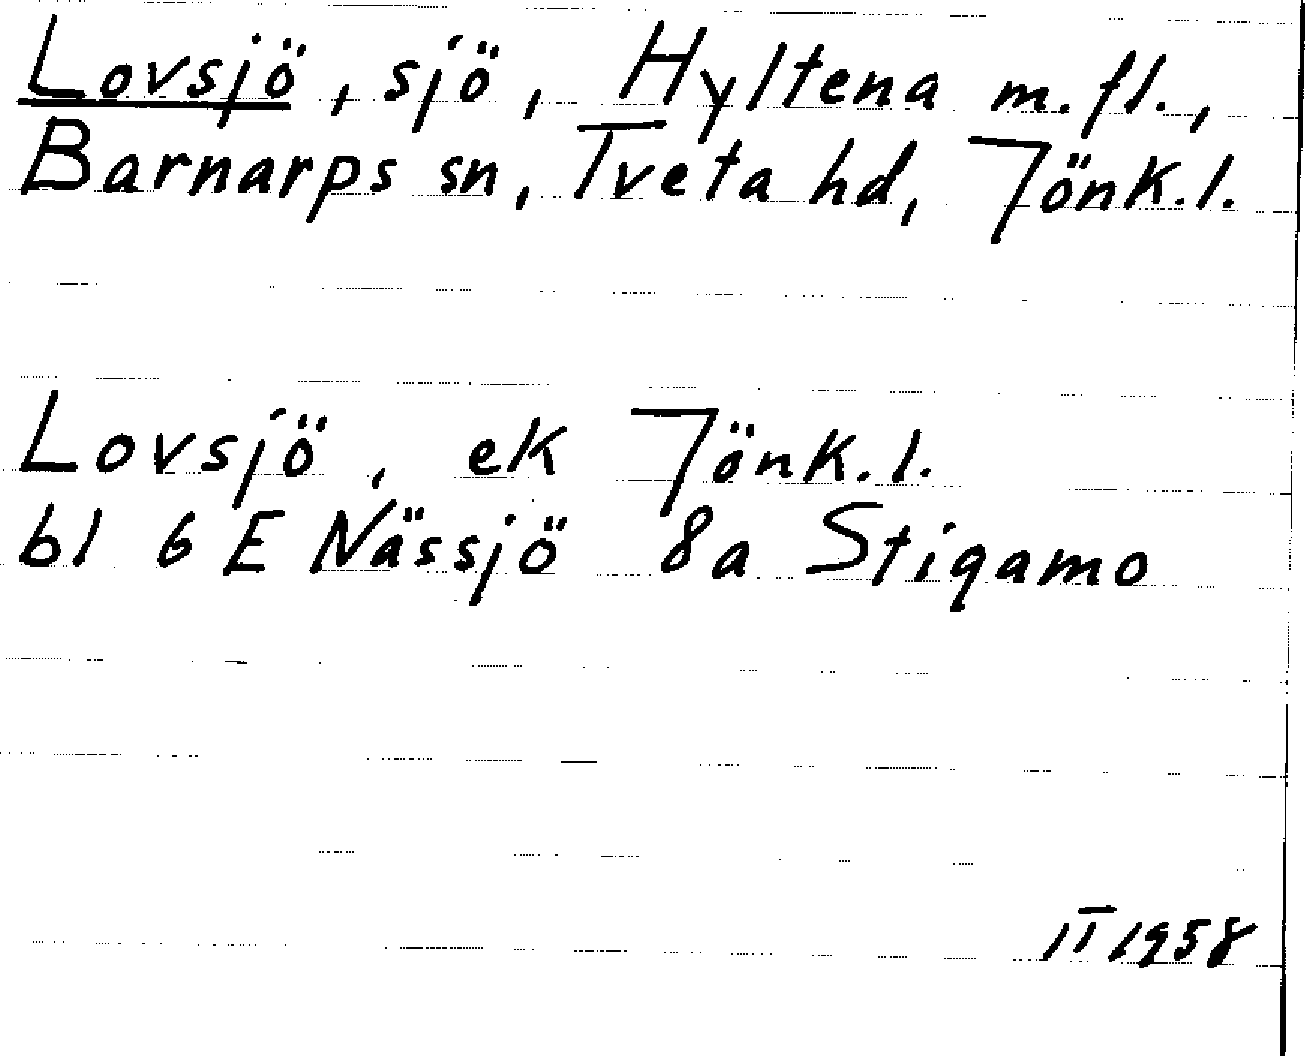 Lovsjö, sjö, Hyltena m.fl.,
Barnarps sn, Tveta hd, Jönk.l.
Lovsjö, ek Jönk.l.
bl 6 E Nässjö 8a Stigamo
II 1958